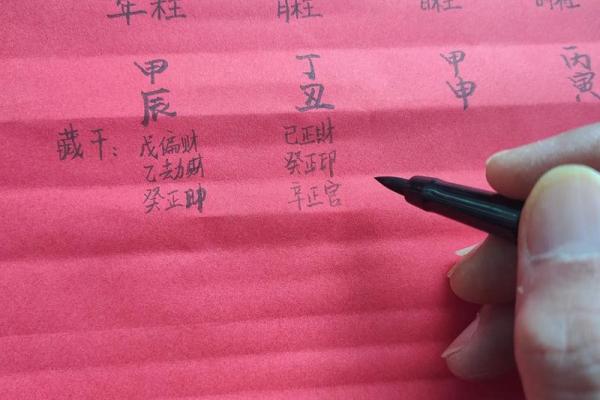 年柱 月柱 日柱 时柱
甲 丁 甲 丙
辰 丑 申 寅
藏干: 戊偏财 己正财
乙劫财 癸正印
癸正印 辛正官